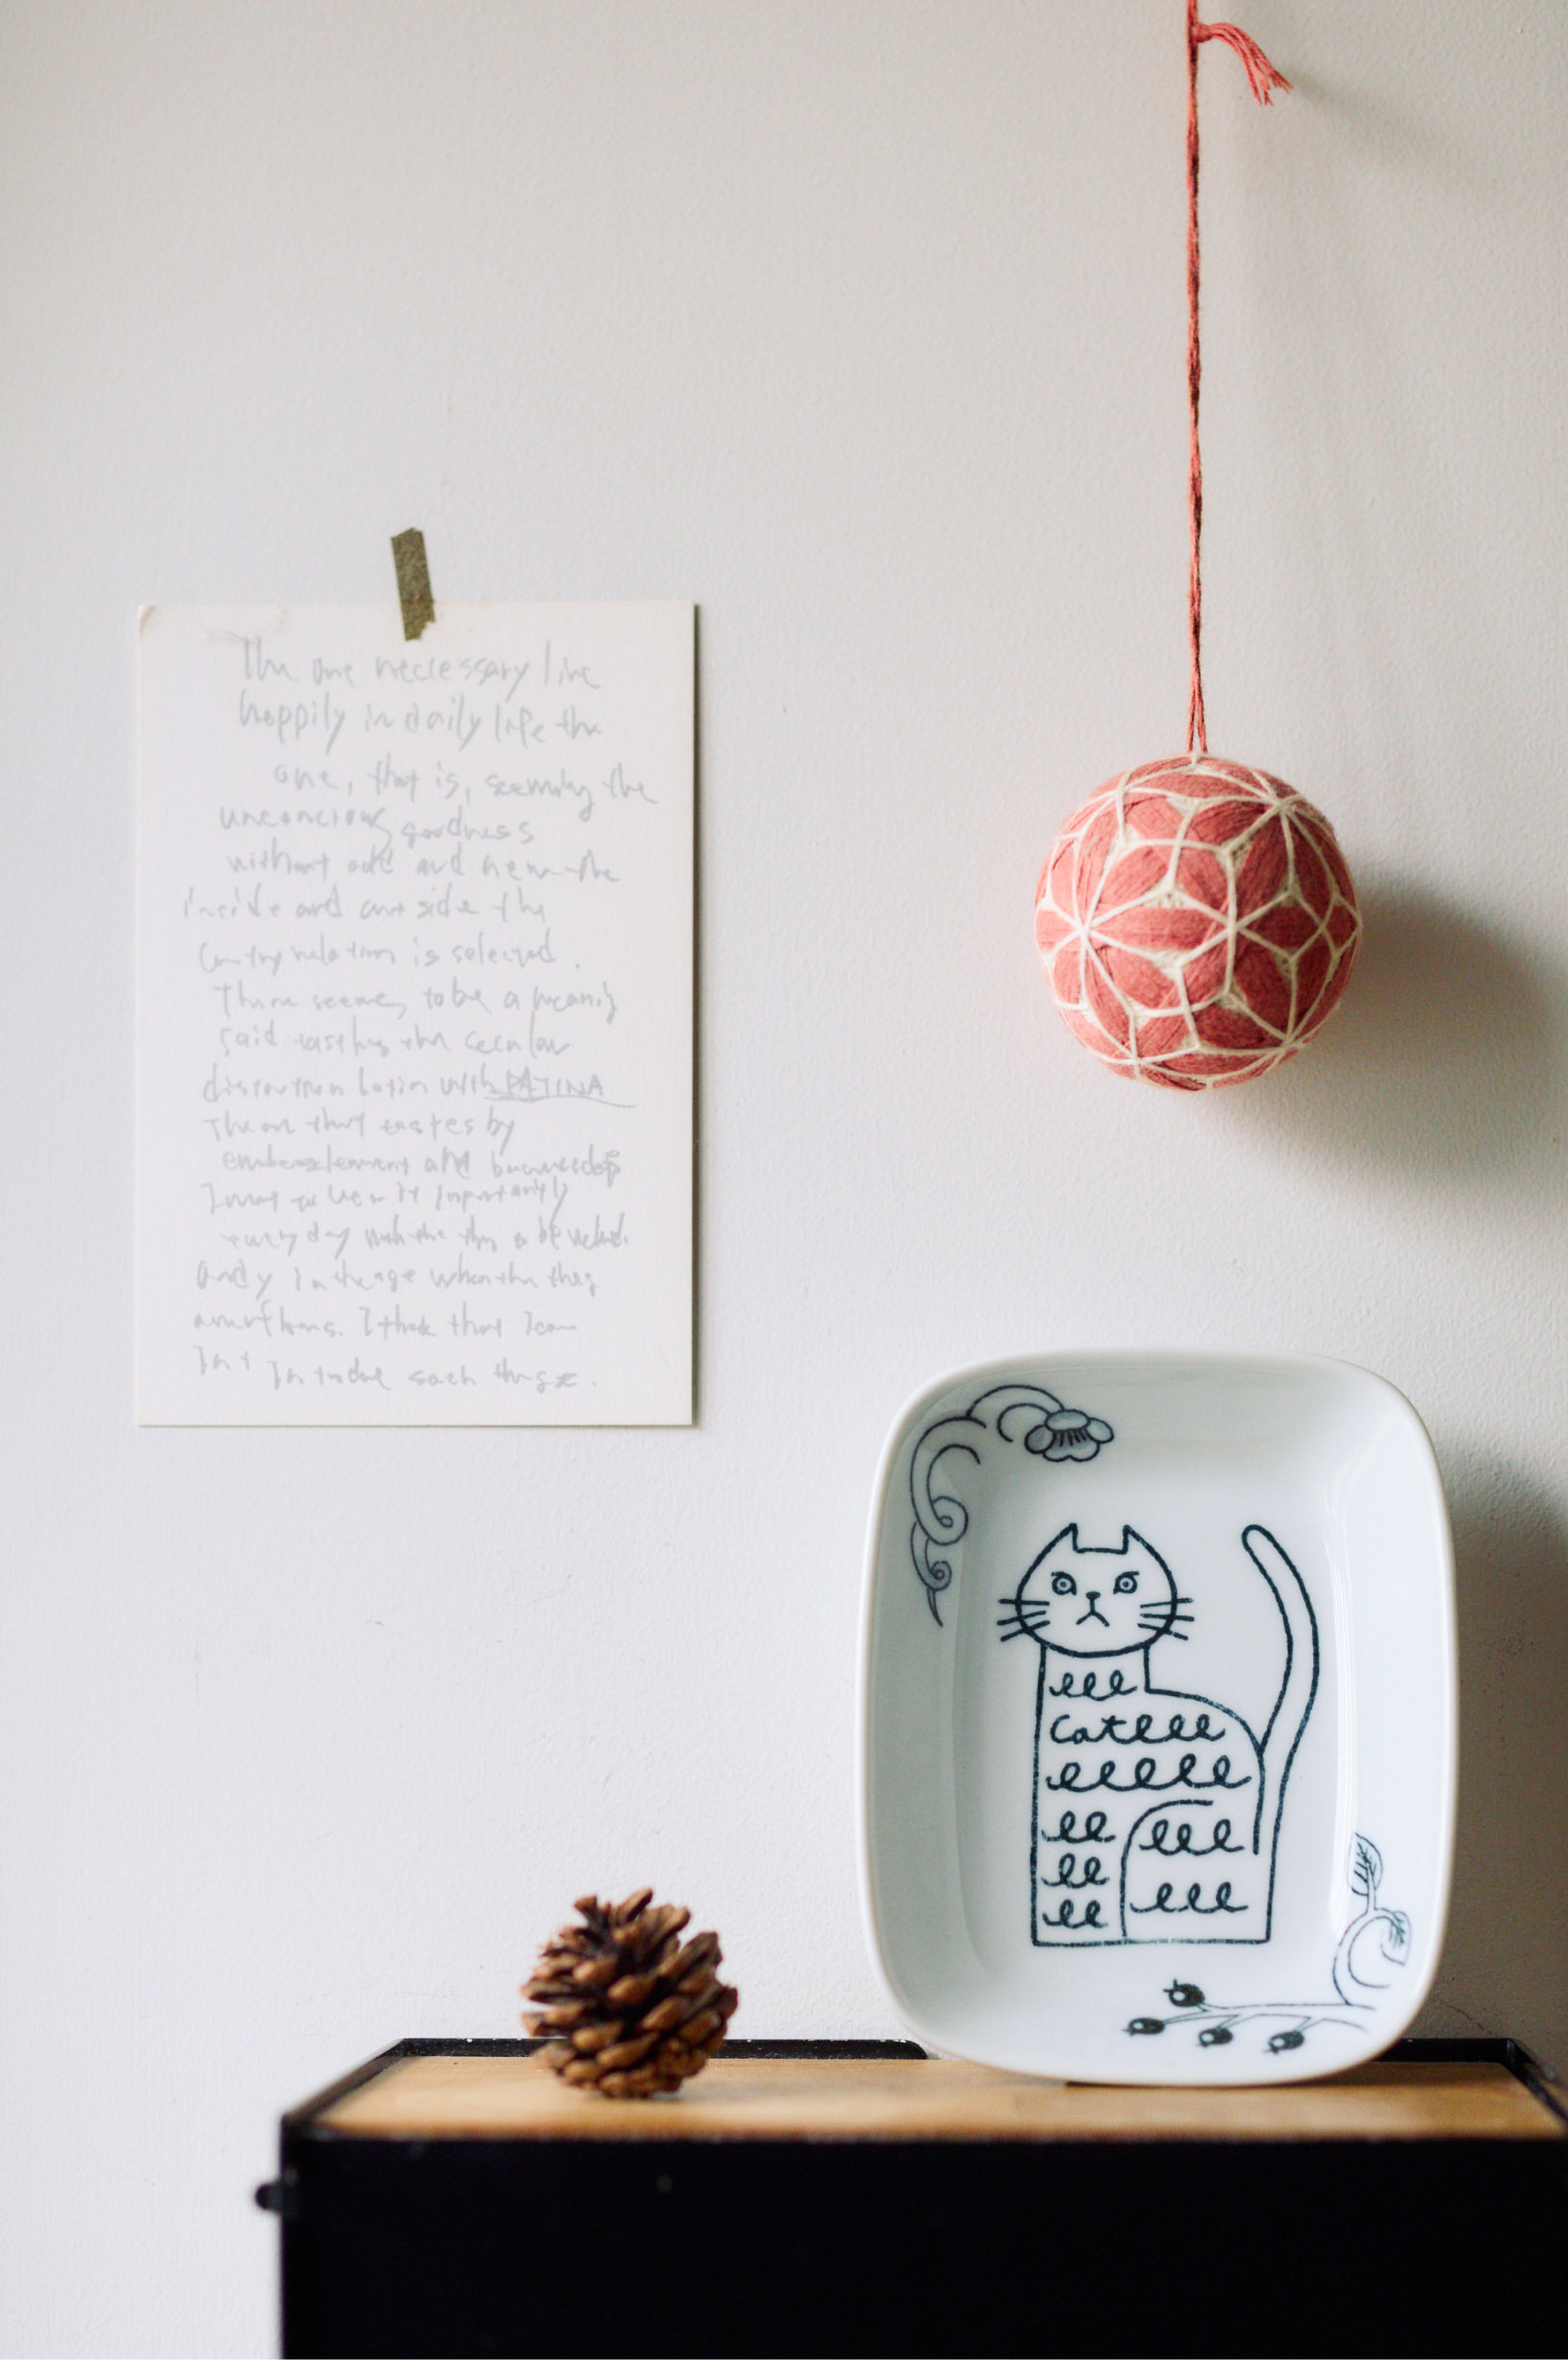 The one neccessary live
happily in daily life the
one, that is, seeming the
unconcious goodness
without old and new the
inside and out side the
country relation is selected.
There seems to be a meaning
said tasting the secular
distortion with PATINA
The one that tastes by
and
I want to use it importantly
every day with the thing
in the age when the thing
overflows. I think that I can
introduce such things.
eee
Cateee
eeeee
ee eee
ee
ee eee